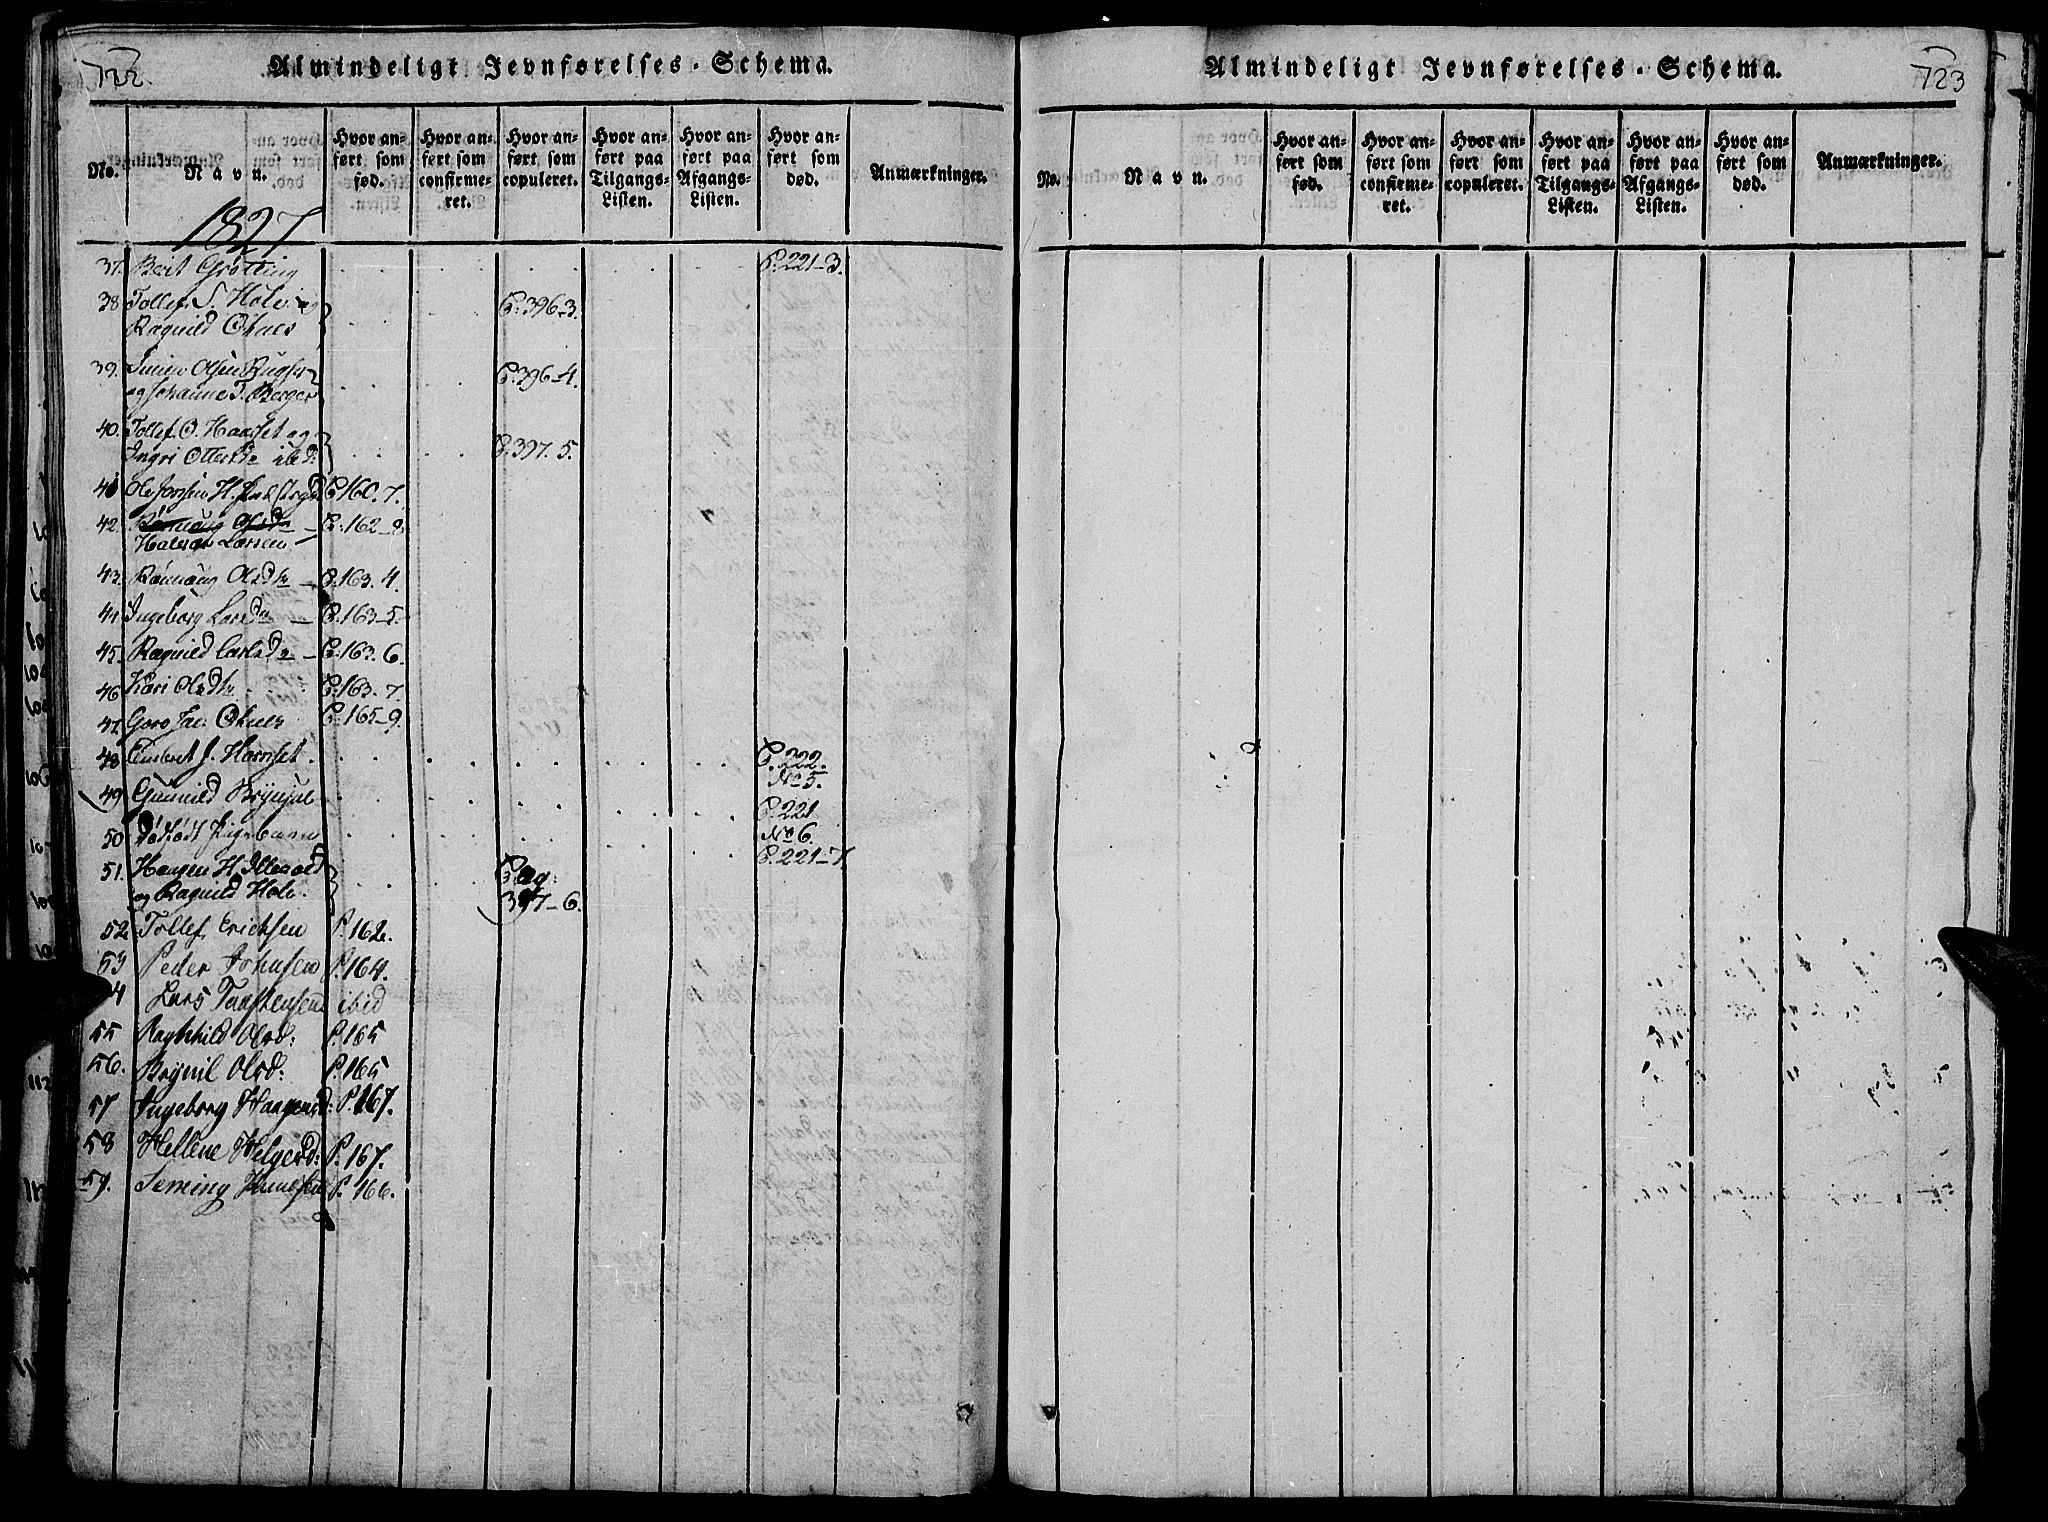 722.
Almindeligt Jevnførelses-Schema.
No.
Navn.
Hvor an-
ført som
fød.
Hvor an-
ført som
confirme-
ret.
Hvor an-
ført som
copuleret.
Hvor an-
ført paa
Tilgangs-
Listen.
Hvor an-
ført paa
Afgangs-
Listen.
Hvor an-
ført som
død.
Anmærkninger.
1827
37. Berit Grøtting P. 221-3.
38 Tollef S. Hole og
Ragnild P. 396-3.
39. Olsen
og Johanne T. Berger P. 396-4.
40. Tollef O. Haarset og
Ingri Ottersdr ibid. P. 397. 5.
41 Ole P. 160. 7.
42. Rønnaug Olsdr P. 162-8
Halvor Larsen
43. Rønnaug Olsdr P. 163. 4.
44 Ingeborg Larsdr P. 163-5.
45. Ragnild Carlsdr P. 163. 6.
46 Kari Olsdtr P. 163. 7.
47. Goro P. 165-9.
48 Embret J. Harrset. P. 222.
No 5.
49 Gunnild Brynjul P. 221
No 6.
50 Dødfødt Pigebarn P. 221-7.
51. Haagen H.
og Ragnild Hole. Pag:
397-6.
52 Tollef Erichsen P. 162.
53 Peder Johnsen P. 164.
54 Lars Taastensen ibid
55 Raghnild Olsd: P. 165
56. Brynil Olsd: P. 165
57 Ingeborg Haagensd: P. 167.
58 Hellene Helgesd: P. 167.
59. Seming Knudsen P. 166.
Almindeligt Jevnførelses-Schema.
723
No.
Navn.
Hvor an-
ført som
fød.
Hvor an-
ført som
confirme-
ret.
Hvor an-
ført som
copuleret.
Hvor an-
ført paa
Tilgangs-
Listen.
Hvor an-
ført paa
Afgangs-
Listen.
Hvor an-
ført som
død.
Anmærkninger.